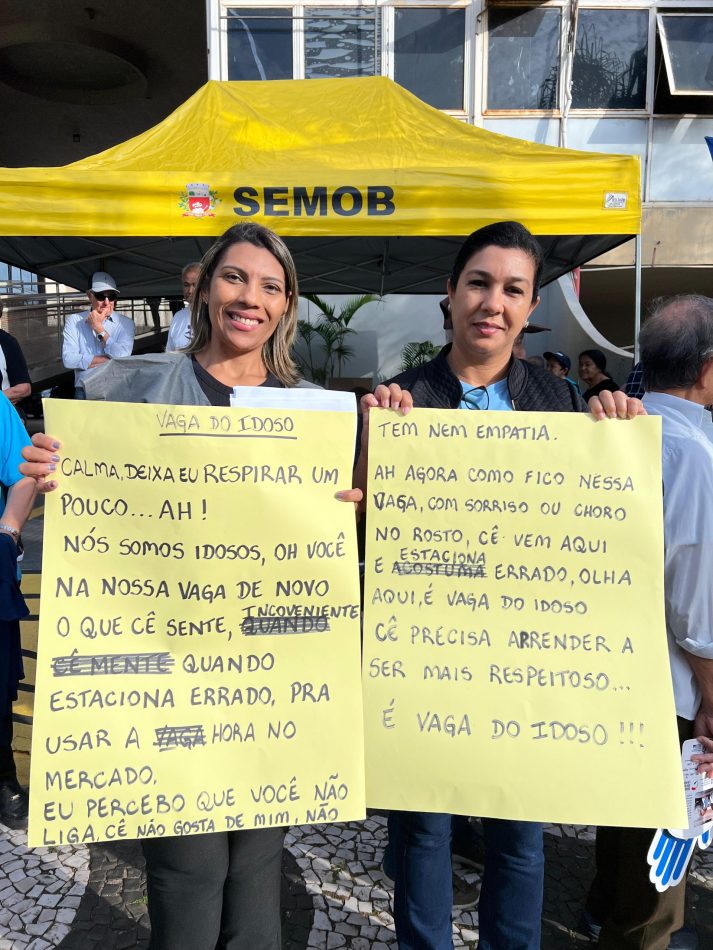 SEMOB
VAGA DO IDOSO
CALMA, DEIXA EU RESPIRAR UM
POUCO... AH!
NÓS SOMOS IDOSOS, OH VOCÊ
NA NOSSA VAGA DE NOVO
O QUE CÊ SENTE, INCOVENIENTE QUANDO
CÊ MENTE QUANDO
ESTACIONA ERRADO, PRA
USAR A VAGA HORA NO
MERCADO.
EU PERCEBO QUE VOCÊ NÃO
LIGA, CÊ NÃO GOSTA DE MIM, NÃO
TEM NEM EMPATIA.
AH AGORA COMO FICO NESSA
VAGA, COM SORRISO OU CHORO
NO ROSTO, CÊ VEM AQUI
E ESTACIONA ACOSTUMA ERRADO, OLHA
AQUI, É VAGA DO IDOSO
CÊ PRÉCISA APRENDER A
SER MAIS RESPEITOSO...
É VAGA DO IDOSO !!!